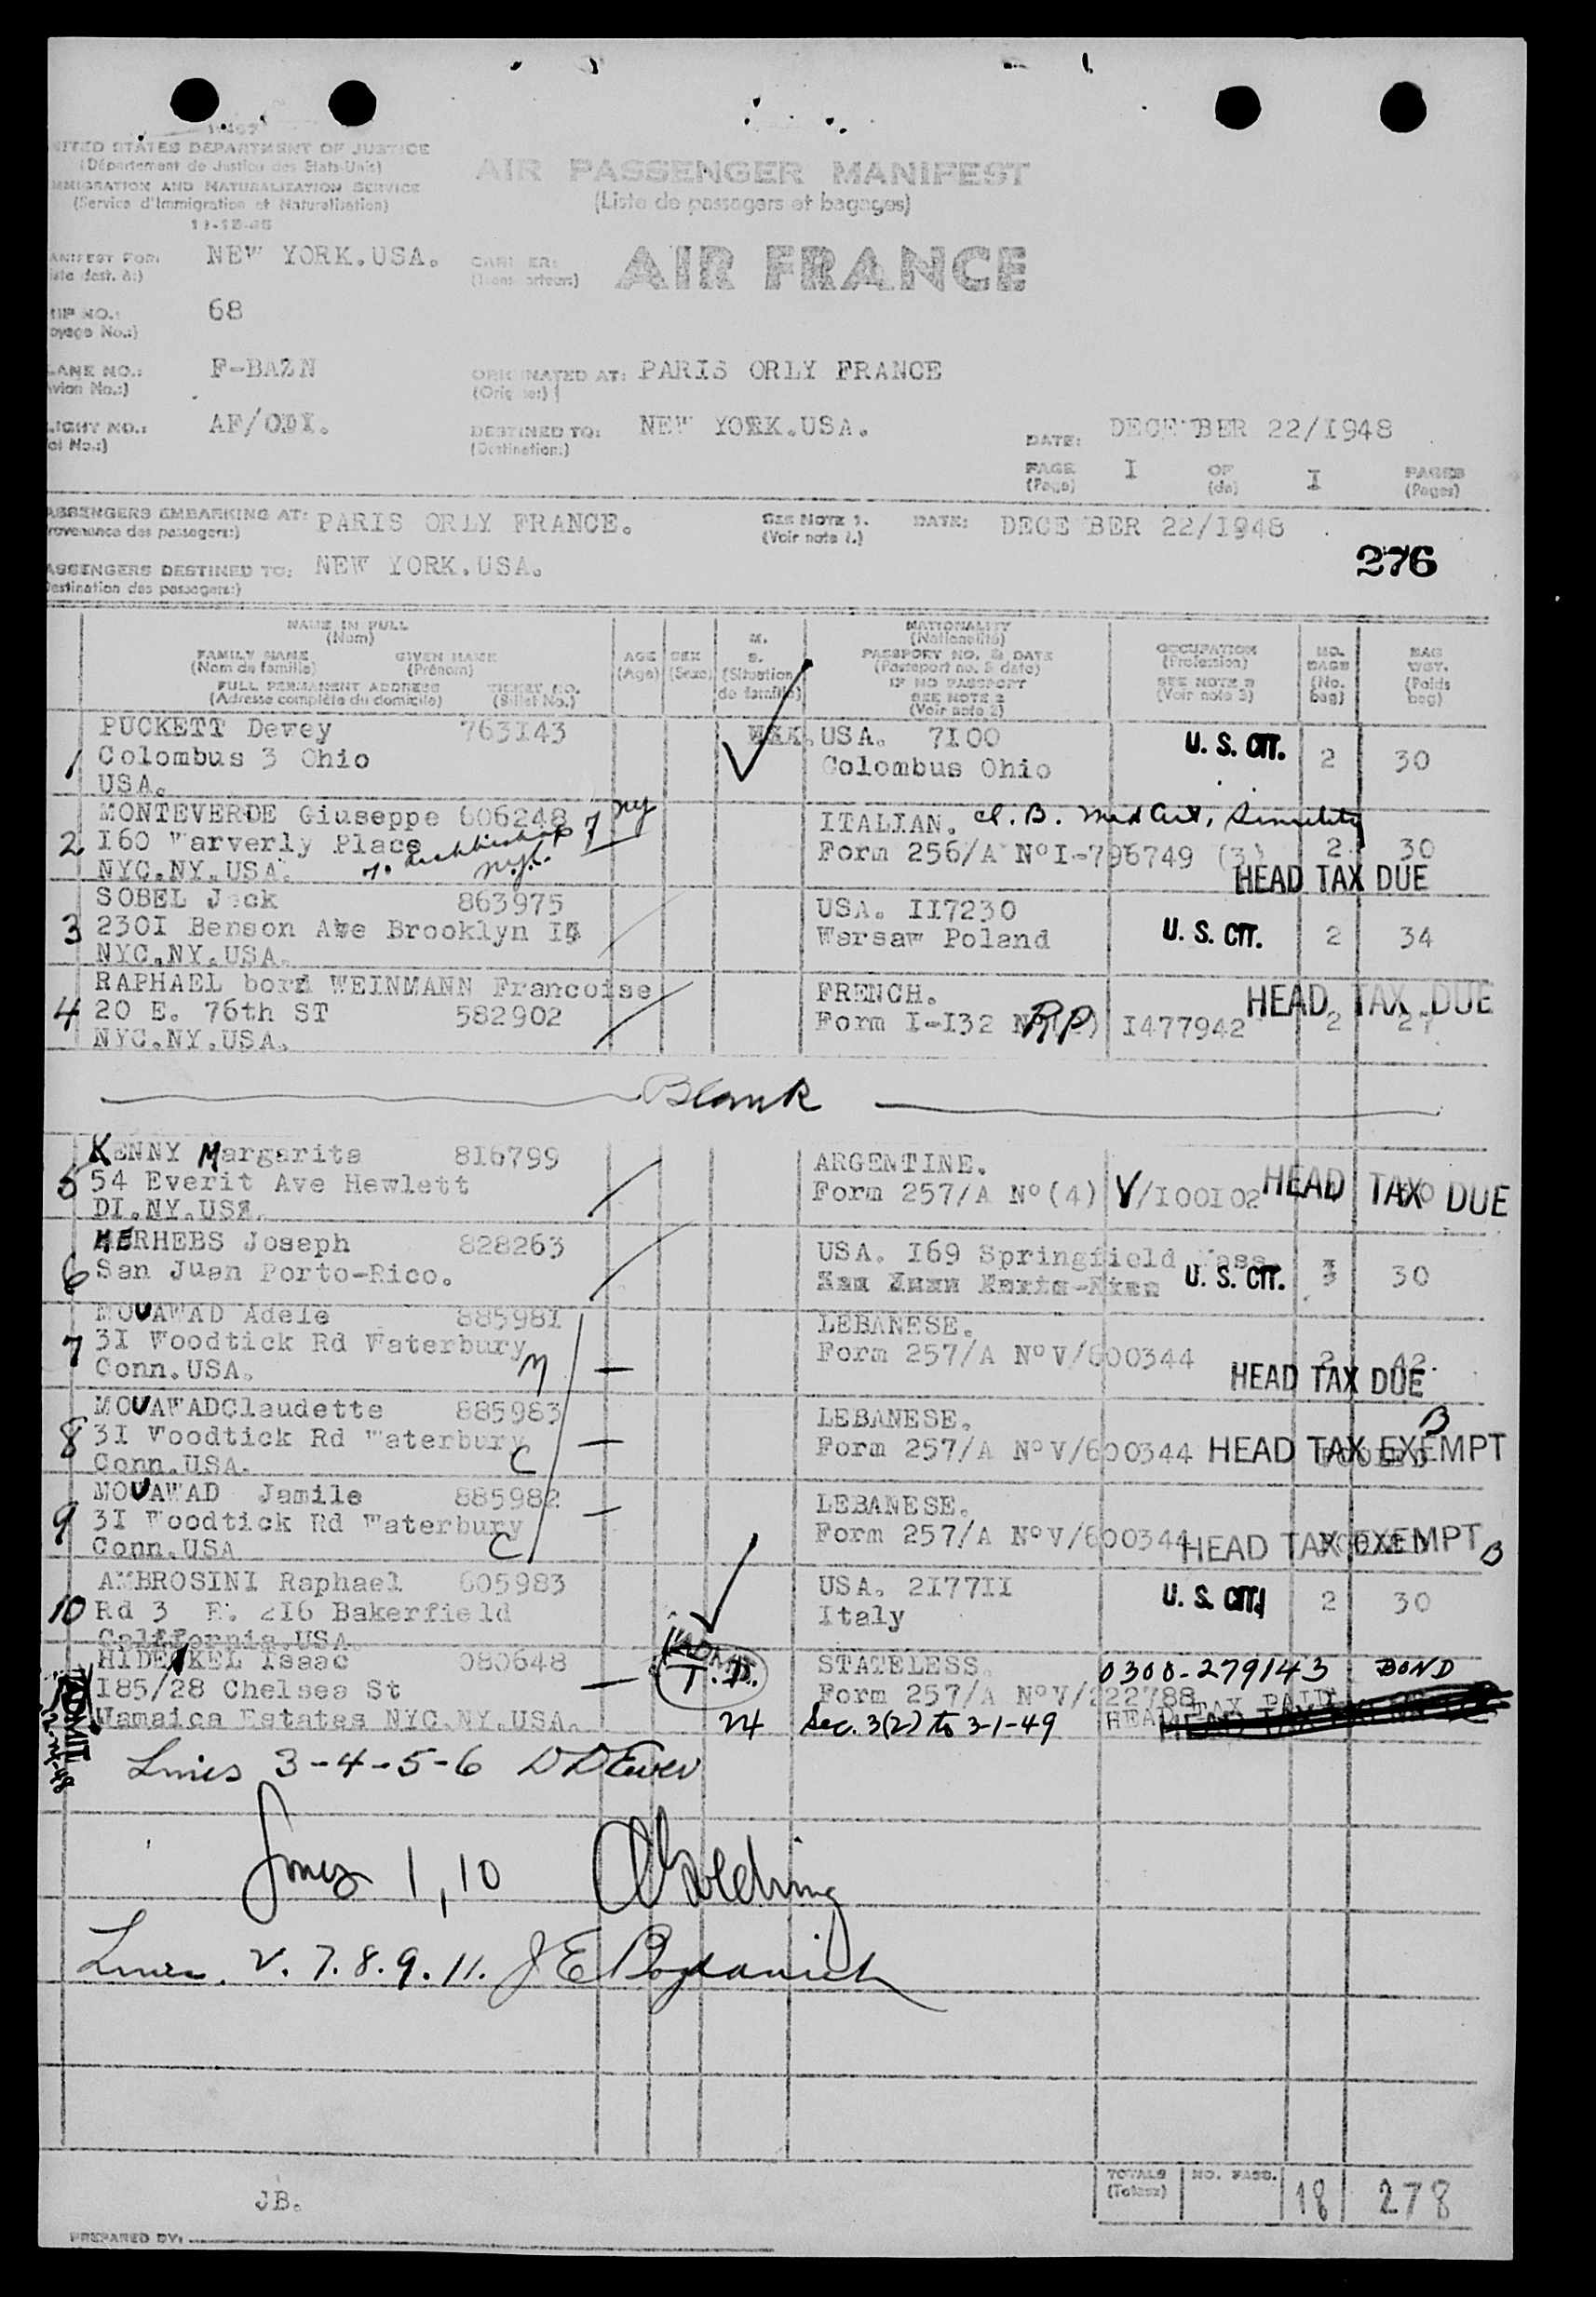 UNITED STATES DEPARTMENT OF JUSTICE
(Département de Justice des Etats-Unis)
IMMIGRATION AND NATURALIZATION SERVICE
(Service d'Immigration et Naturalisation)
AIR PASSENGER MANIFEST
(Liste de passagers et bagages)
MANIFEST FOR: NEW YORK.USA. CARRIER: AIR FRANCE
68
F-BAZN ORIGINATED AT: PARIS ORLY FRANCE
AF/
DESTINED TO: NEW YORK.USA. DATE: DECE BER 22/I948
(Destination:)
PAGE I OF I PAGES
(Page) (de) (Pages)
PASSENGERS EMBARKING AT: PARIS ORLY FRANCE. SEE NOTE 1. DATE: DECE BER 22/I948
(Provenance des passagers:) (Voir note 1.)
276
PASSENGERS DESTINED TO: NEW YORK.USA.
(Destination des passagers:)
NAME IN FULL
(Nom)
FAMILY NAME GIVEN NAME
(Nom de famille) (Prénom)
FULL PERMANENT ADDRESS TICKET NO.
(Adresse complète du domicile) (Billet No.)
AGE SEX M. S.
(Age) (Sexe) (Situation de famille)
NATIONALITY
(Nationalité)
PASSPORT NO. & DATE
(Passeport no. & date)
IF NO PASSPORT
SEE NOTE 2
(Voir note 2)
OCCUPATION
(Profession)
SEE NOTE 3
(Voir note 3)
NO. BAGS
(No. bag)
BAG WGT.
(Poids bag)
PUCKETT Dewey 763I43 USA. 7I00 U. S. CIT. 2 30
1 Colombus 3 Ohio Colombus Ohio
USA.
MONTEVERDE Giuseppe 606248 ny ITALIAN.
2 I60 Warverly Place Form 256/A N°I-796749 (3) 2 30
NYC.NY.USA. HEAD TAX DUE
SOBEL Jack 863975 USA. II7230
3 230I Benson Ave Brooklyn Warsaw Poland U. S. CIT. 2 34
NYC.NY.USA.
RAPHAEL born WEINMANN Francoise FRENCH. HEAD TAX DUE
4 20 E. 76th ST 582902 Form I-I32 RP I477942 2 27
NYC.NY.USA.
Blank
KENNY Margarita 816799 ARGENTINE.
5 54 Everit Ave Hewlett Form 257/A N°(4) V/I00I02 HEAD TAX DUE
MERHEBS Joseph 828263 USA. I69 Springfield Mass
6 San Juan Porto-Rico. U. S. CIT. 3 30
MOUAWAD Adele 88598I LEBANESE.
7 3I Woodtick Rd Waterbury Form 257/A N°V/600344 2 42
Conn.USA. M HEAD TAX DUE
MOUAWADClaudette 885983 LEBANESE. B
8 3I Woodtick Rd Waterbury Form 257/A N°V/600344 HEAD TAX EXEMPT
Conn.USA. C
MOUAWAD Jamile 885982 LEBANESE.
9 3I Woodtick Rd Waterbury Form 257/A N°V/600344 HEAD TAX EXEMPT B
Conn.USA C
AMBROSINI Raphael 605983 USA. 2I77II U. S. CIT. 2 30
10 Rd 3 216 Bakerfield Italy
California.USA.
Isaac 080648 T.D. STATELESS. 0300-279143 BOND
I85/28 Chelsea St Form 257/A N°V/222788
Jamaica Estates NYC.NY.USA. Sec. 3(2) to 3-1-49 HEAD TAX PAID
ADMIT
Lines 3-4-5-6
Lines 1, 10
Lines. 2. 7. 8. 9. 11. J E Bogdanich
TOTALS NO. PASS. 18 278
(Totaux)
JB.
PREPARED BY: